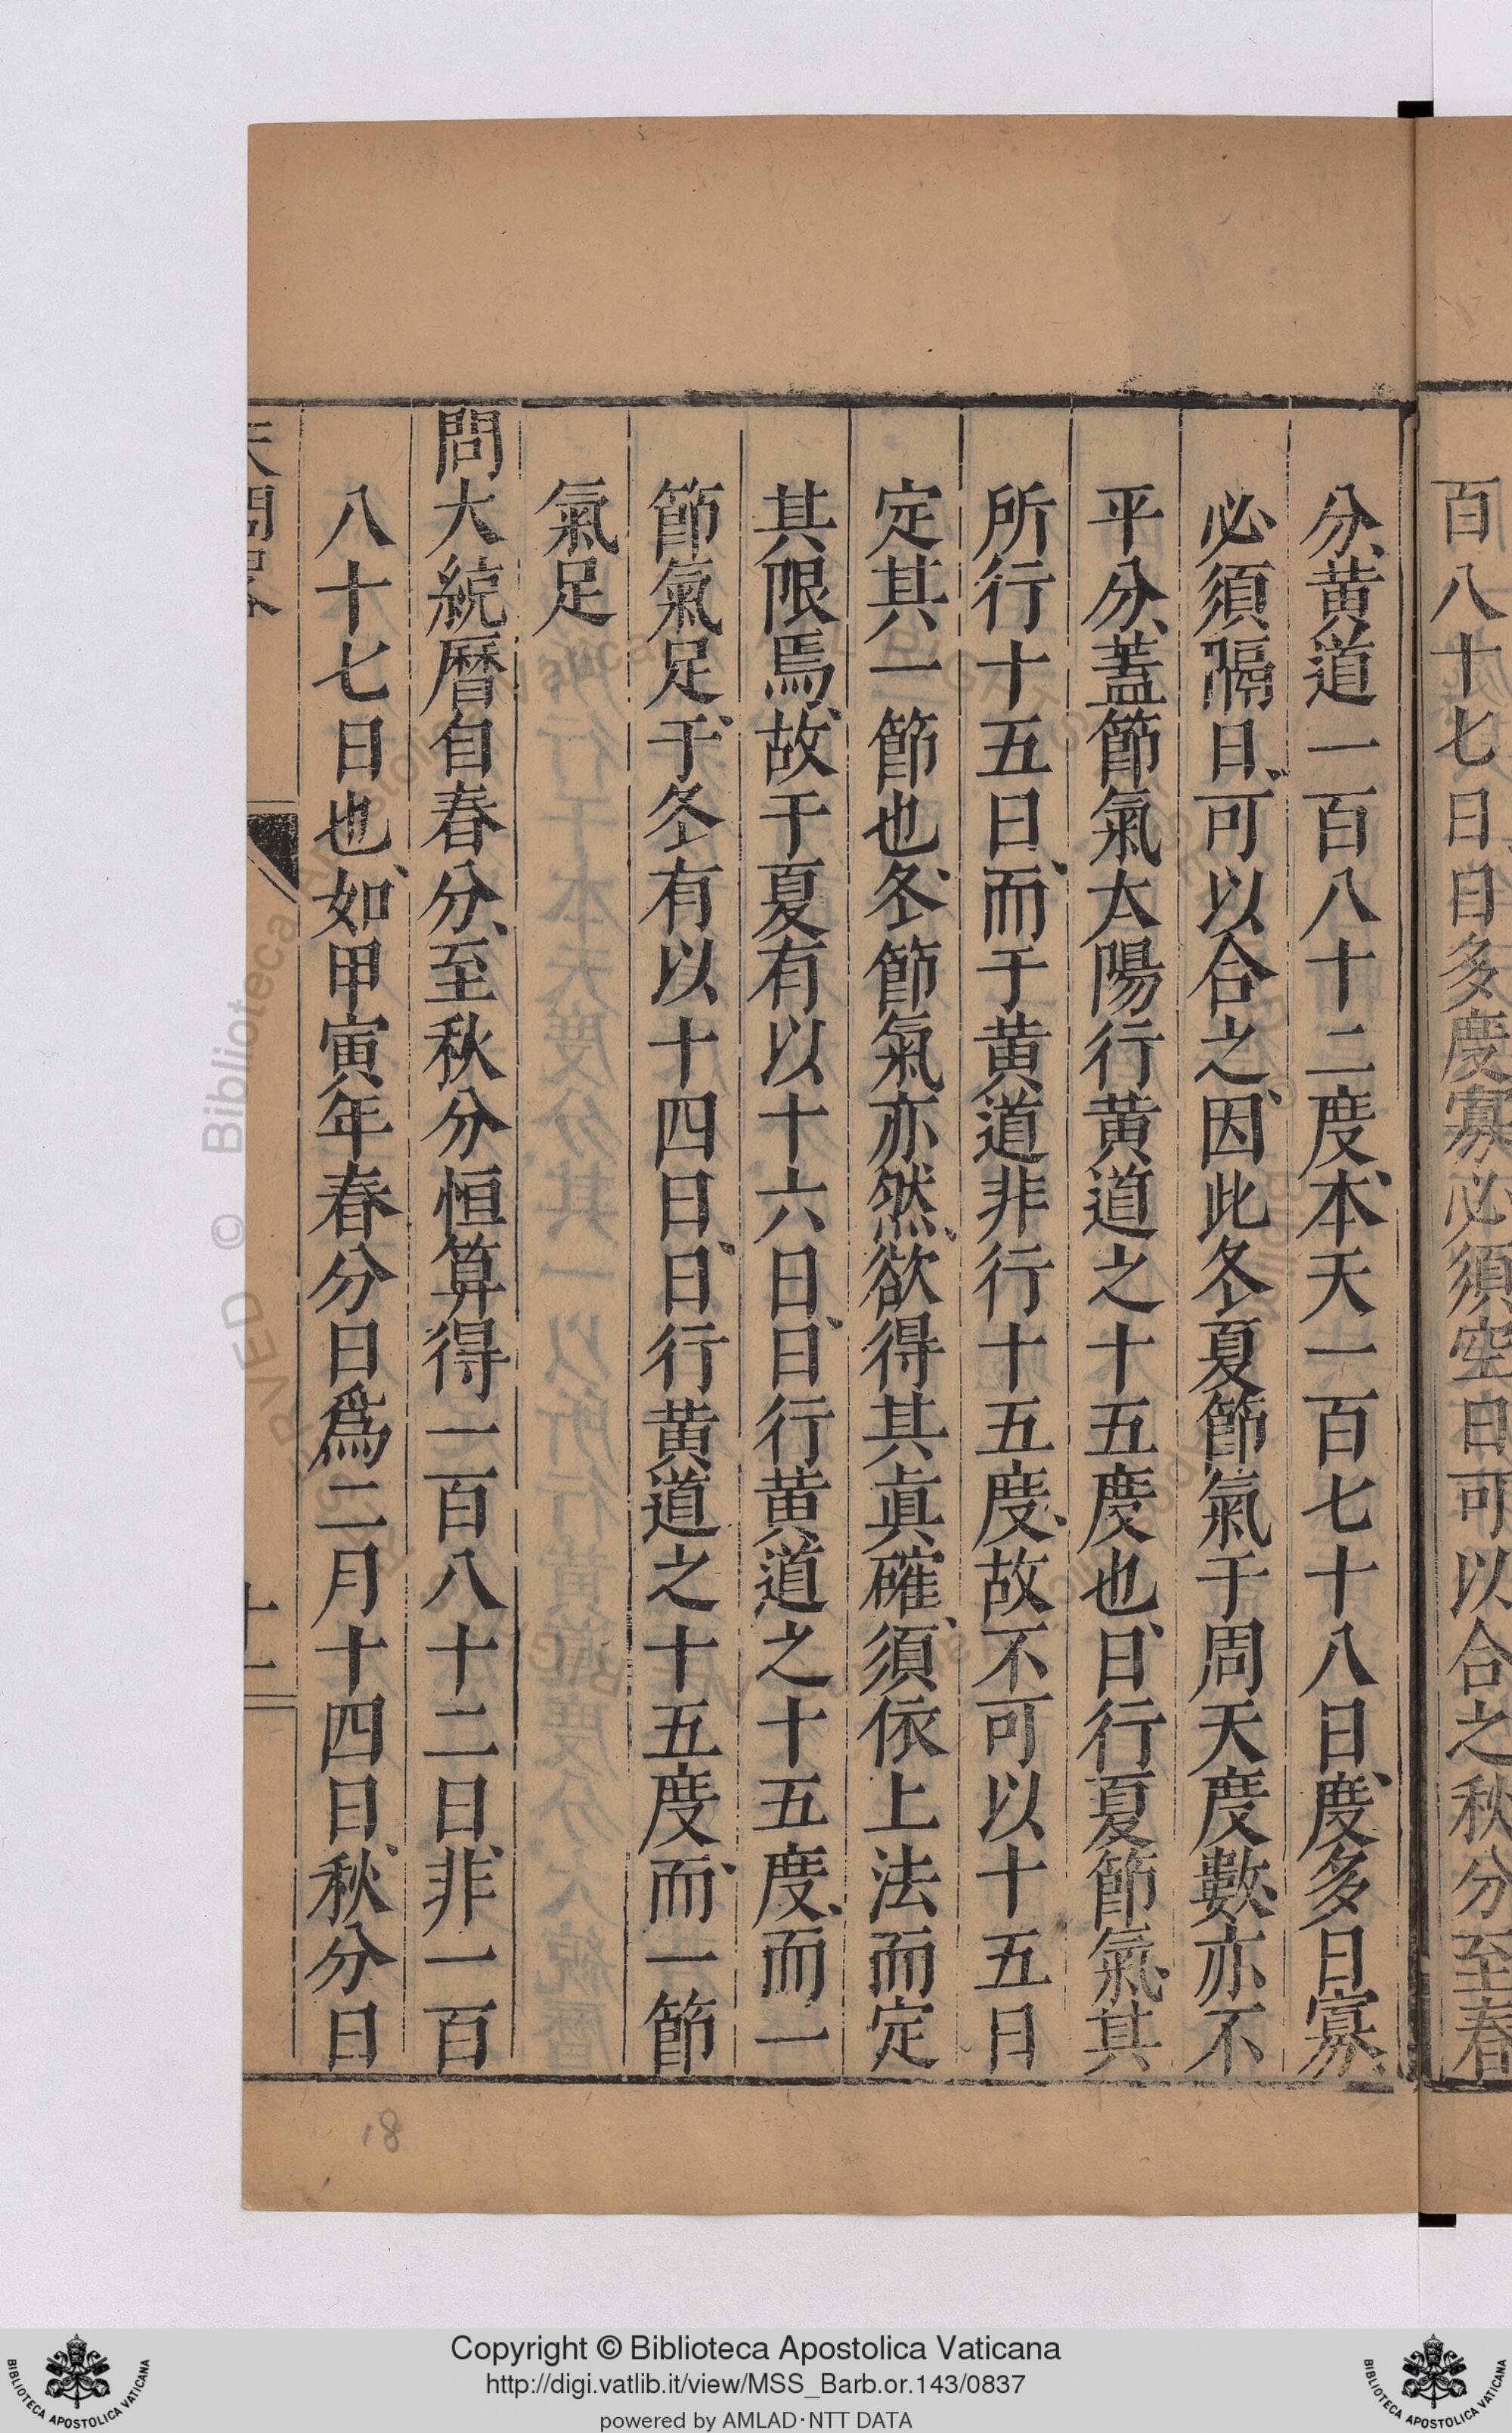 百八十七日日多度寡必須空日可以合之秋分至春
分、黄道一百八十二度、本天一百七十八日、度多日寡、
必須隔日、可以合之、因此冬夏節氣于周天度數、亦不
平分、蓋節氣太陽行黄道之十五度也、日行夏節氣、其
所行十五日、而于黄道非行十五度、故不可以十五日
定其一節也、冬節氣亦然、欲得其眞確、須依上法而定
其限焉、故于夏有以十六日、日行黄道之十五度、而一
節氣足、于冬有以十四日、日行黄道之十五度、而一節
氣足
問大統曆自春分、至秋分恒算得一百八十二日、非一百
八十七日也、如甲寅年春分日爲二月十四日、秋分日
天問畧
十一
81
Copyright © Biblioteca Apostolica Vaticana
http://digi.vatlib.it/view/MSS_Barb.or.143/0837
powered by AMLAD·NTT DATA
BIBLIOTECA APOSTOLICA VATICANA
BIBLIOTECA APOSTOLICA VATICANA